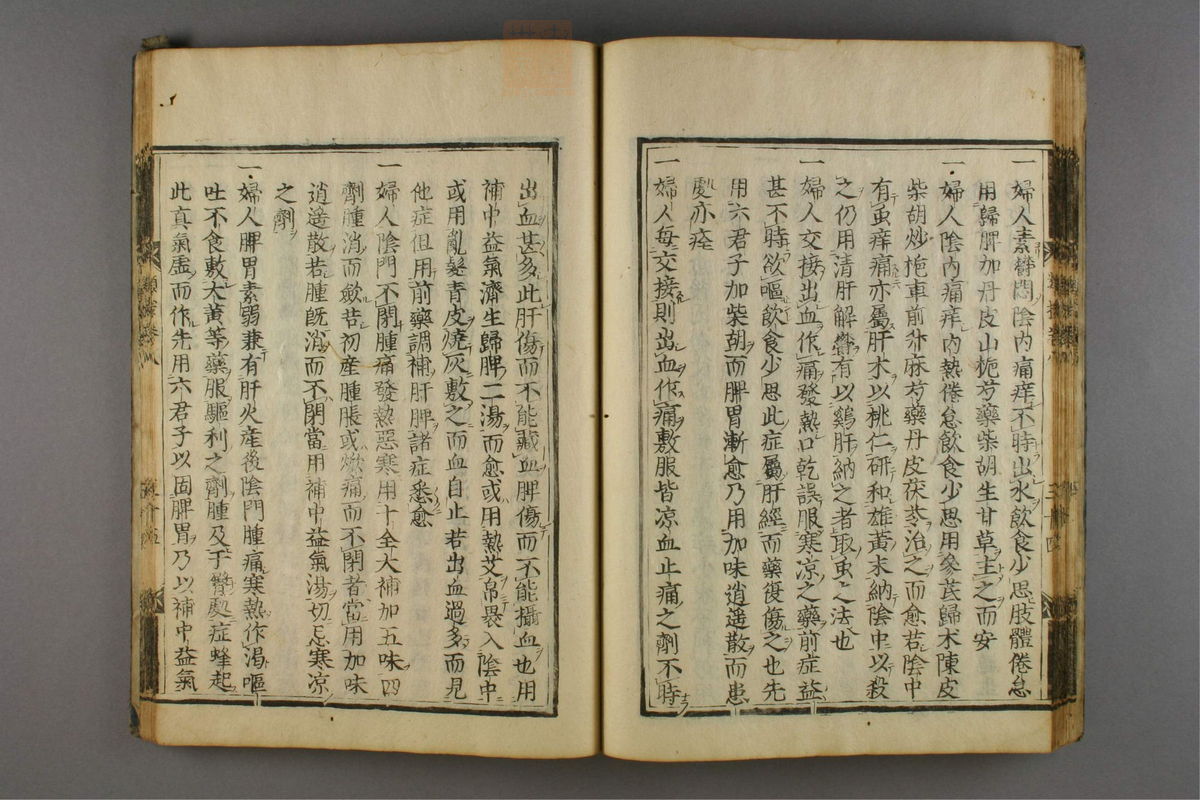 一婦人素欝悶陰内痛痒不時出水飲食少思肢體倦怠
用歸脾加丹皮山梔芍藥柴胡生甘草主之而安
一婦人陰内痛痒内熱倦怠飲食少思用參茋歸朮陳皮
柴胡炒梔車前升麻芍藥丹皮茯苓治之而愈若陰中
有虫痒痛亦屬肝木以桃仁研和雄黄末納陰中以殺
之仍用清肝解欝有以鷄肝納之者取虫之法也
一婦人交接出血作痛發熱口乾誤服寒凉之藥前症益
甚不時欲嘔飲食少思此症屬肝經而藥復傷之也先
用六君子加柴胡而脾胃漸愈乃用加味逍遥散而患
處亦痊
一婦人每交接則出血作痛敷服皆凉血止痛之劑不時
出血甚多此肝傷而不能藏血脾傷而不能攝血也用
補中益氣濟生歸脾二湯而愈或用熱艾帛畏入陰中
或用亂髮青皮燒灰敷之而血自止若出血過多而見
他症但用前藥調補肝脾諸症悉愈
一婦人陰門不閉腫痛發熱惡寒用十全大補加五味四
劑腫消而歛若初産腫脹或焮痛而不閉者當用加味
逍遥散若腫既消而不閉當用補中益氣湯切忌寒凉
之劑
一婦人脾胃素弱兼有肝火産後陰門腫痛寒熱作渴嘔
吐不食敷大黄等藥服驅利之劑腫及于臀處症蜂起
此真氣虚而作先用六君子以固脾胃乃以補中益氣